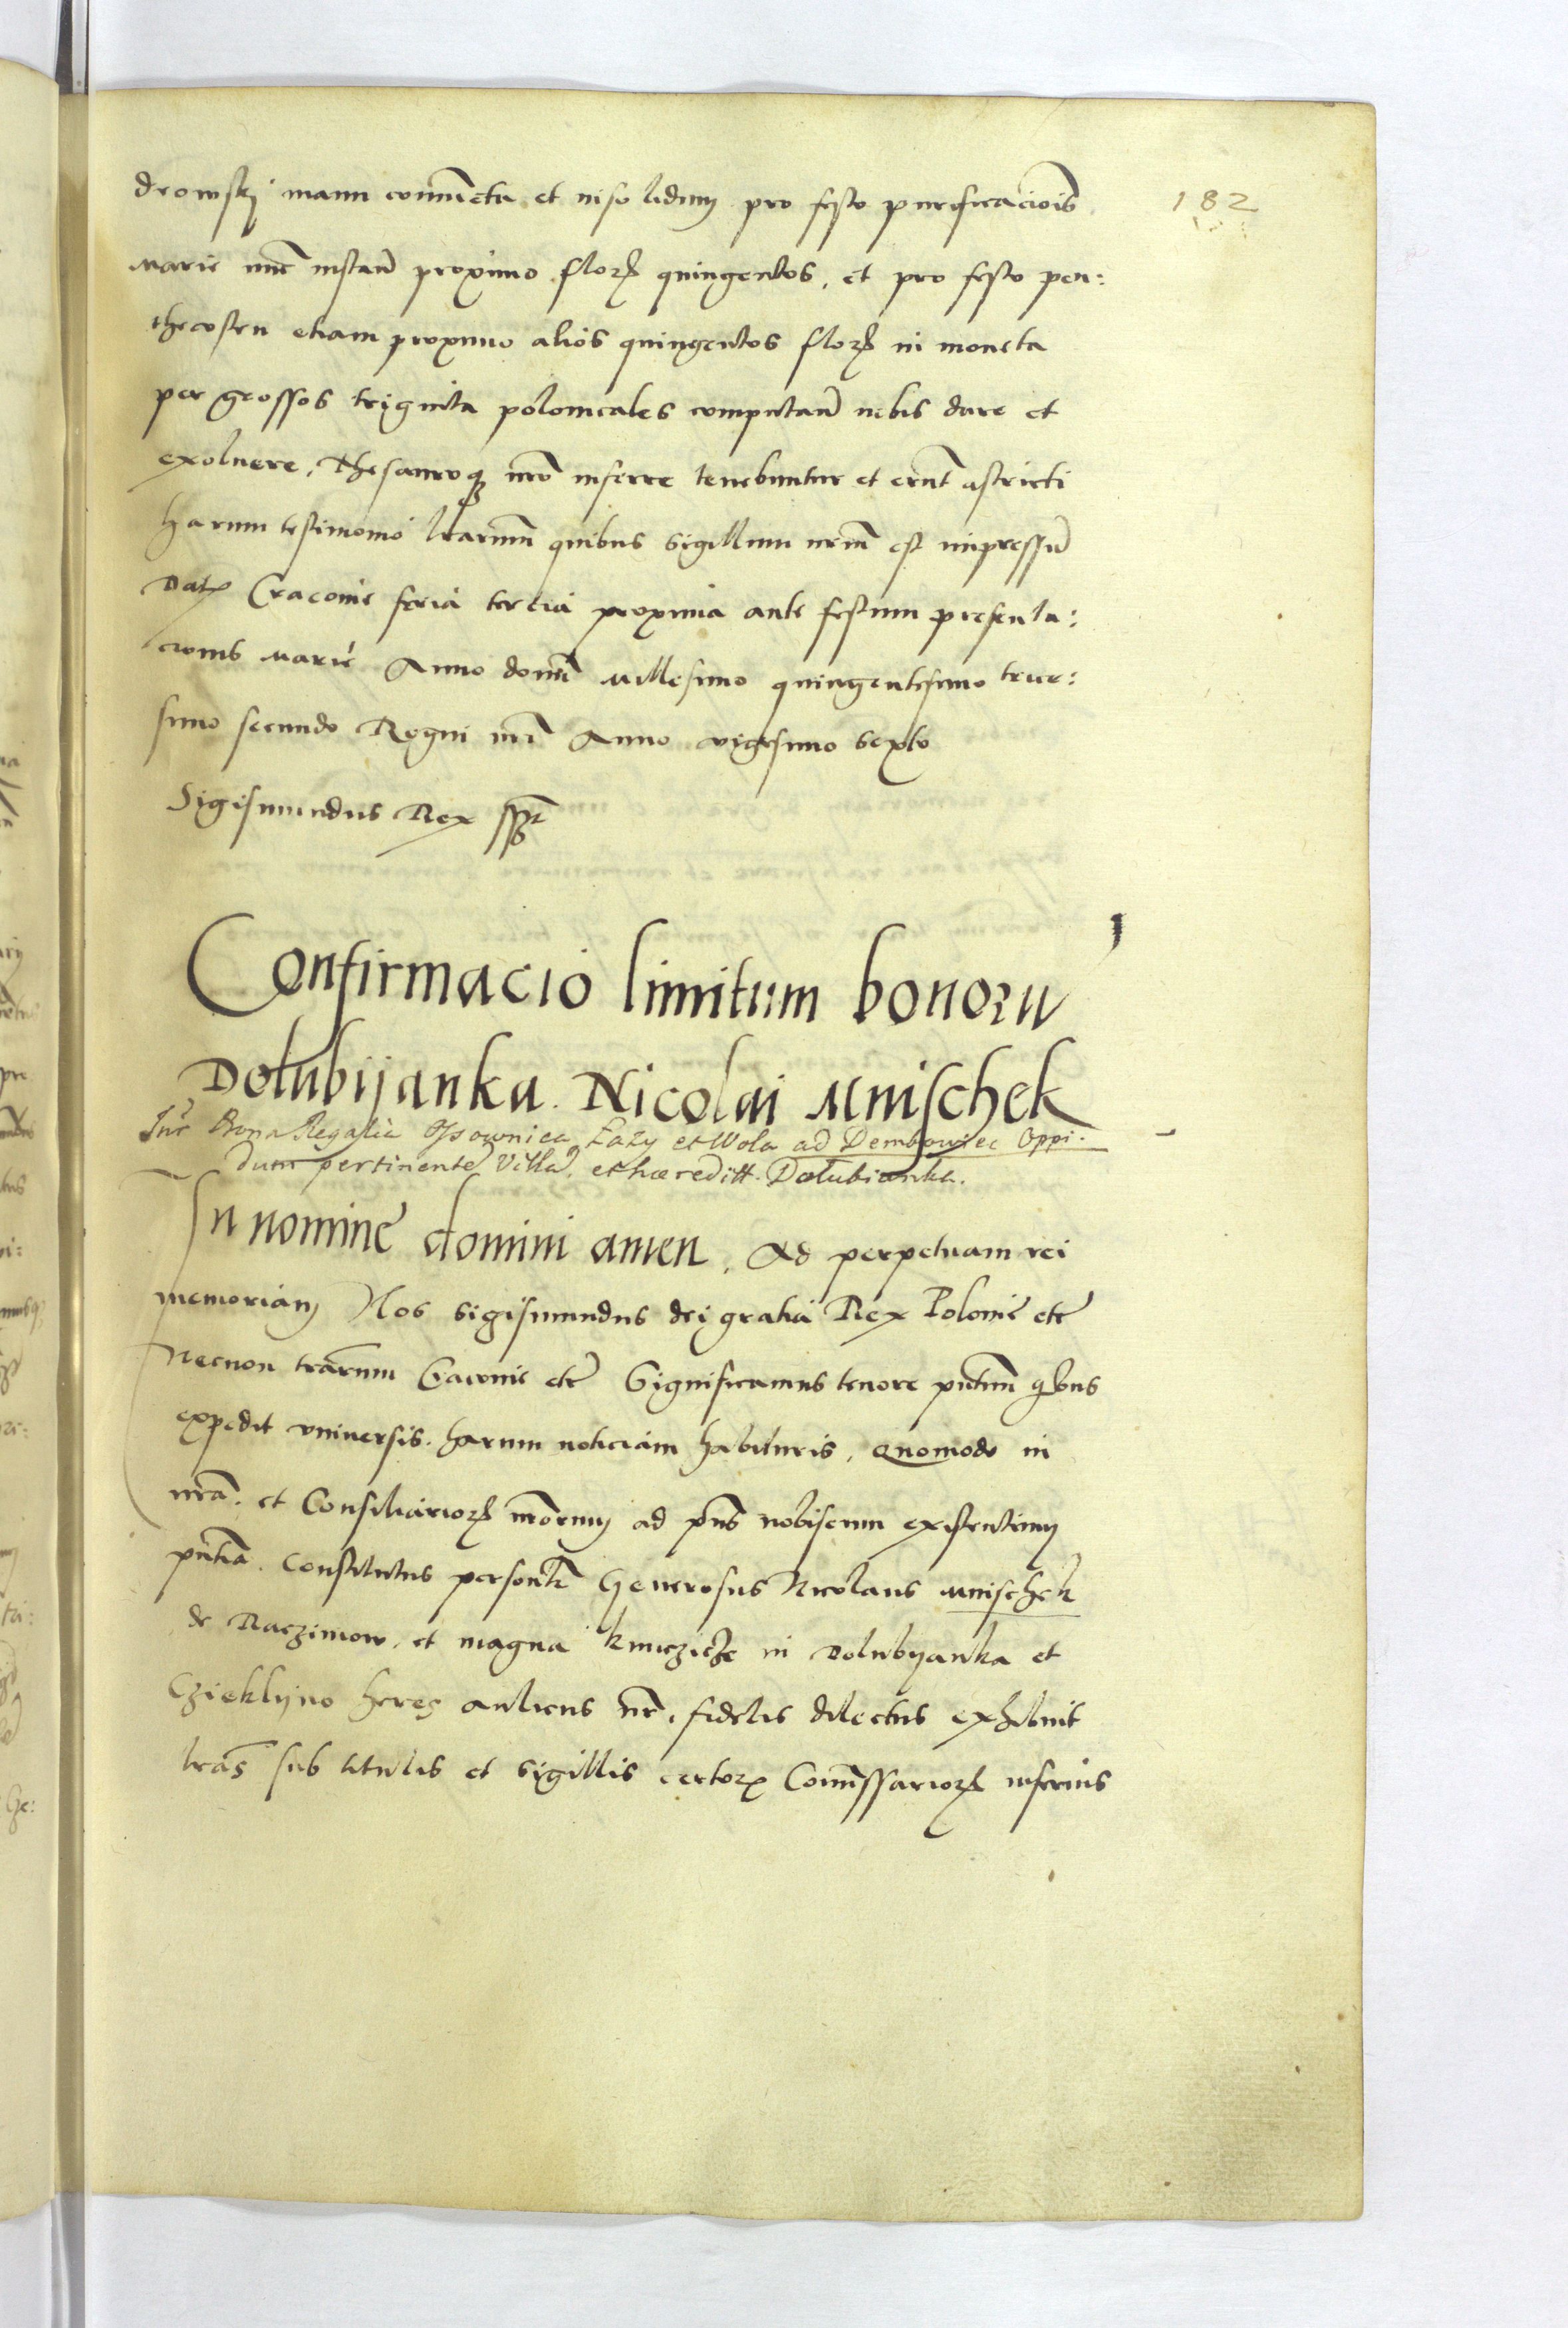 182
drowskj manu coniuncta et insolidum pro festo purificaciois
Marie nuc instañ proximo florẽ quingentos, et pro festo pen:
thecosten etiam proximo alios quingentos florẽ in moneta
per grossos triginta polonicales computañ nobis dare et
exoluere, Thesauroqꝫ nro inferre tenebuntur et erũt astricti
harum testimonio lrarum quibus sigillum nrum est impressũ
Datꝫ Cracovie feria tercia proxima ante festum presenta:
cionis Marie Anno domi Millesimo quingentesimo trice:
simo secundo Regni nri Anno vigesimo sexto
Sigismundus Rex sszt
Confirmacio limitum bonorũ
Dolubijanka. Nicolai Mnischek
Int̃ Bona Regalia Osownica Łazy et Wola ad Dembowiec Oppi-
dum pertinente Villa, et hæreditt. Dolubianka.
In nomine domini amen, Ad perpetuam rei
memoriam Nos Sigismundus dei gratia Rex Polonie etc̃
Necnon trarum Cracovie etc̃ Significamus tenore pñtium qbus
expedit vniuersis. harum noticiam habituris, quomodo in
nrã. et Consiliariorꝫ nrorum ad pñs nobiscum existentium
pñtia. Constitutus personlr Generosus Nicolaus Mnischek
de Naczimow, et magna kunczicze in Dolubyanka et
Czieklijno heres aulicus nr̃, fidelis dilectus exhibuit
lras sub titulis et sigillis certorꝫ Comissariorꝫ inferius